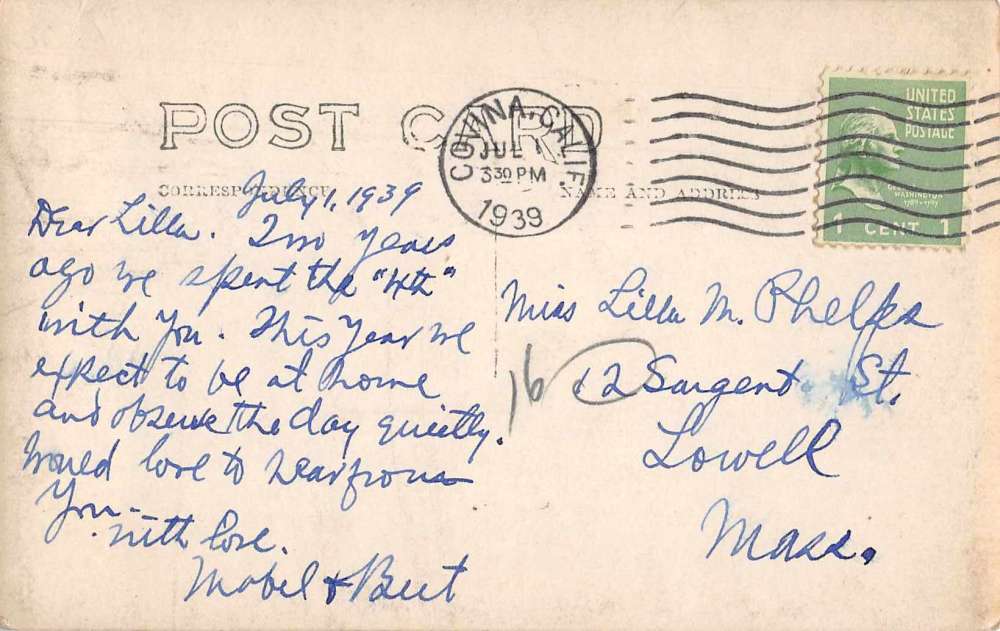 POST CARD
COVINA, CALIF.
JUL 1
3 30 PM
1939
UNITED
STATES
POSTAGE
WASHINGTON
1 CENT 1
CORRESPONDENCE
NAME AND ADDRESS
July 1, 1939
Dear Lilla. Two years
ago we spent the "4th"
with you. This year we
expect to be at home
and observe the day quietly.
Would love to hear from
you.
With love.
Mabel & Bert
Miss Lilla M. Phelps
16 12 Sargent St.
Lowell
Mass.